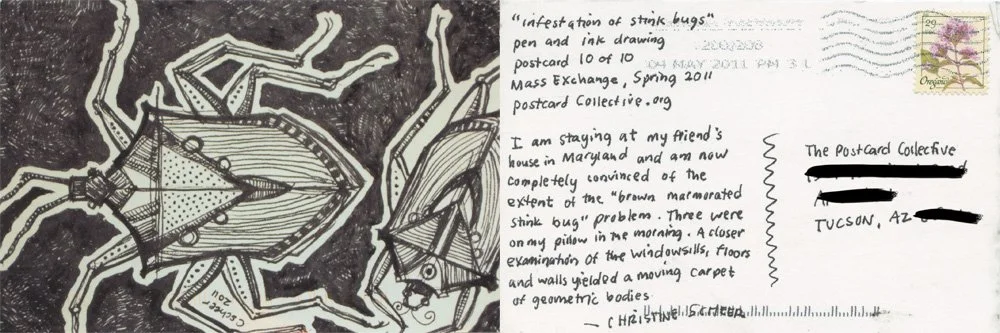 cscheer
2011
"infestation of stink bugs"
pen and ink drawing
postcard 10 of 10
Mass Exchange, Spring 2011
postcard Collective.org
I am staying at my friend's
house in Maryland and am now
completely convinced of the
extent of the "brown marmorated
stink bug" problem. Three were
on my pillow in the morning. A closer
examination of the windowsills, floors
and walls yielded a moving carpet
of geometric bodies
— CHRISTINE SCHEER
04 MAY 2011 PM 3 L
29
Oregano
The Postcard Collective
TUCSON, AZ